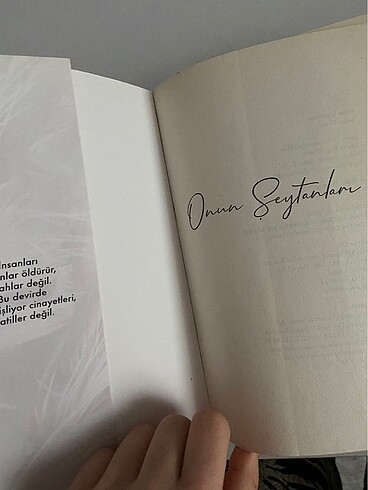 İnsanları
nlar öldürür,
ahlar değil.
Bu devirde
işliyor cinayetleri,
atiller değil.
Onun Şeytanları